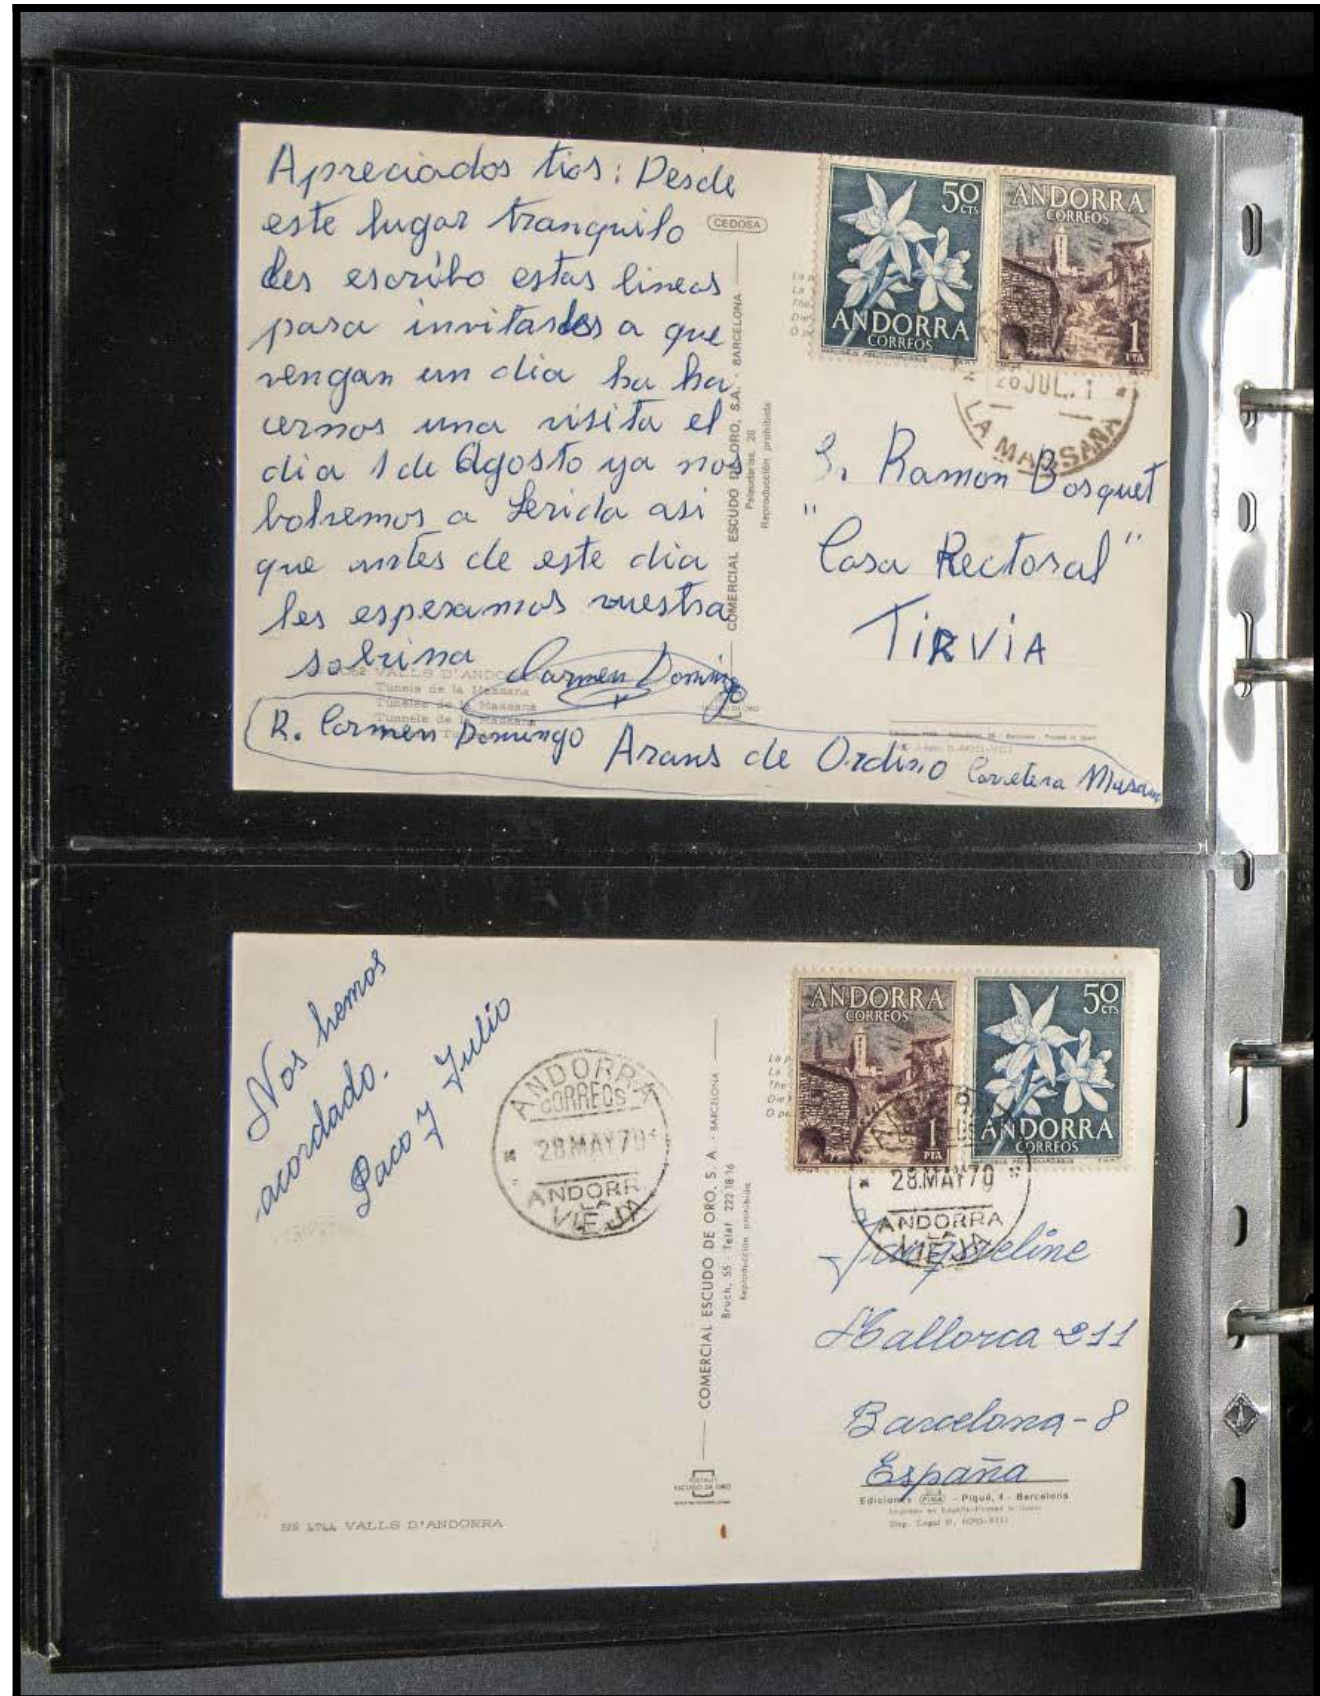 Apreciados tios: Desde
este lugar tranquilo
les escribo estas lineas
para invitarles a que
vengan un dia ha ha
cernos una visita el
dia 1 de Agosto ya nos
bolremos a Lerida asi
que antes de este dia
les esperamos nuestra
sobrina Carmen Domingo
VALLS D'ANDO
Tunels de la Massana
Túneles de la Massana
Tunnels de la Massana
R. Carmen Domingo Arans de Ordino Carretera Masana
CEDOSA
COMERCIAL ESCUDO DE ORO, S.A. - BARCELONA
26
Reproducción prohibida
50 CTS
ANDORRA
CORREOS
ANDORRA
CORREOS
1
PTA
26 JUL.
LA MASSANA
S. Ramon Bosquet
"Casa Rectoral"
TIRVIA
Nos hemos
acordado.
Paco y Julio
ANDORRA
CORREOS
28 MAY 70
ANDORR
LA
VIEJA
COMERCIAL ESCUDO DE ORO, S. A. - BARCELONA
Bruch, 55 - Teléf. 222 18 16
Reproducción prohibida
ESCUDO DE ORO
ANDORRA
CORREOS
1
PTA
50 CTS
ANDORRA
CORREOS
28.MAY70
ANDORRA
LA
VIEJA
Jacqueline
Mallorca 211
Barcelona-8
España
Ediciones FISA - Piqué, 4 - Barcelona
Nº 4744 VALLS D'ANDORRA